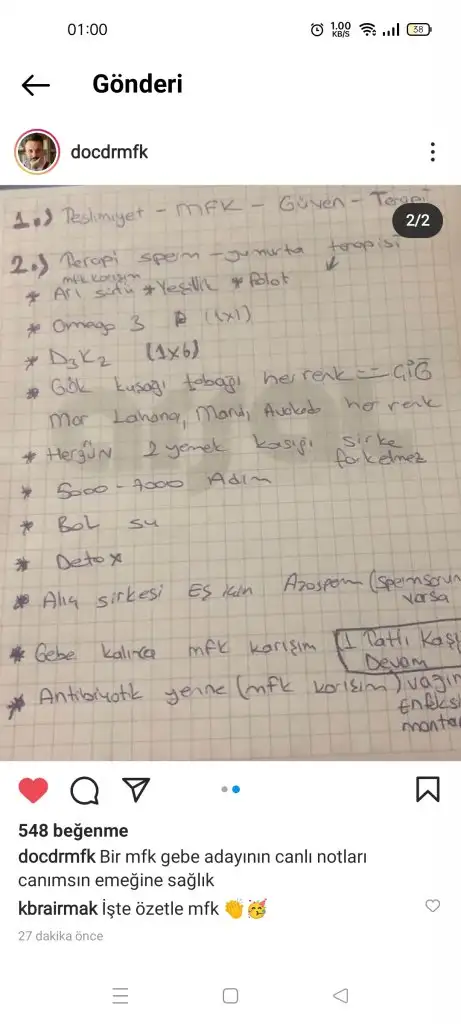 01:00
1.00 KB/S
38
Gönderi
docdrmfk
2/2
1.) Teslimiyet - MFK - Güven - Terapi
2.) Terapi sperm - yumurta terapisi
mfk karışım
* Arı sütü * Yeşillik * Polat
* Omega 3 (1x1)
* D3K2 (1x6)
* Gök kuşağı tabağı her renk = ÇİĞ
Mor Lahana, Mandı, Avokado her renk
* HergÜN 2 yemek kaşığı sirke farketmez
* 5000 - 7000 Adım
* Bol su
* Detox
* Alıç sirkesi Eş için Azosperm (sperm sorun varsa
* Gebe kalınca mfk karışım 1 Tatlı Kaşı
Devam
* Antibiyotik yerine (mfk karışım) vagin
Enfeksi
manta
548 beğenme
docdrmfk Bir mfk gebe adayının canlı notları
canımsın emeğine sağlık
kbrairmak İşte özetle mfk 👏🥳
27 dakika önce